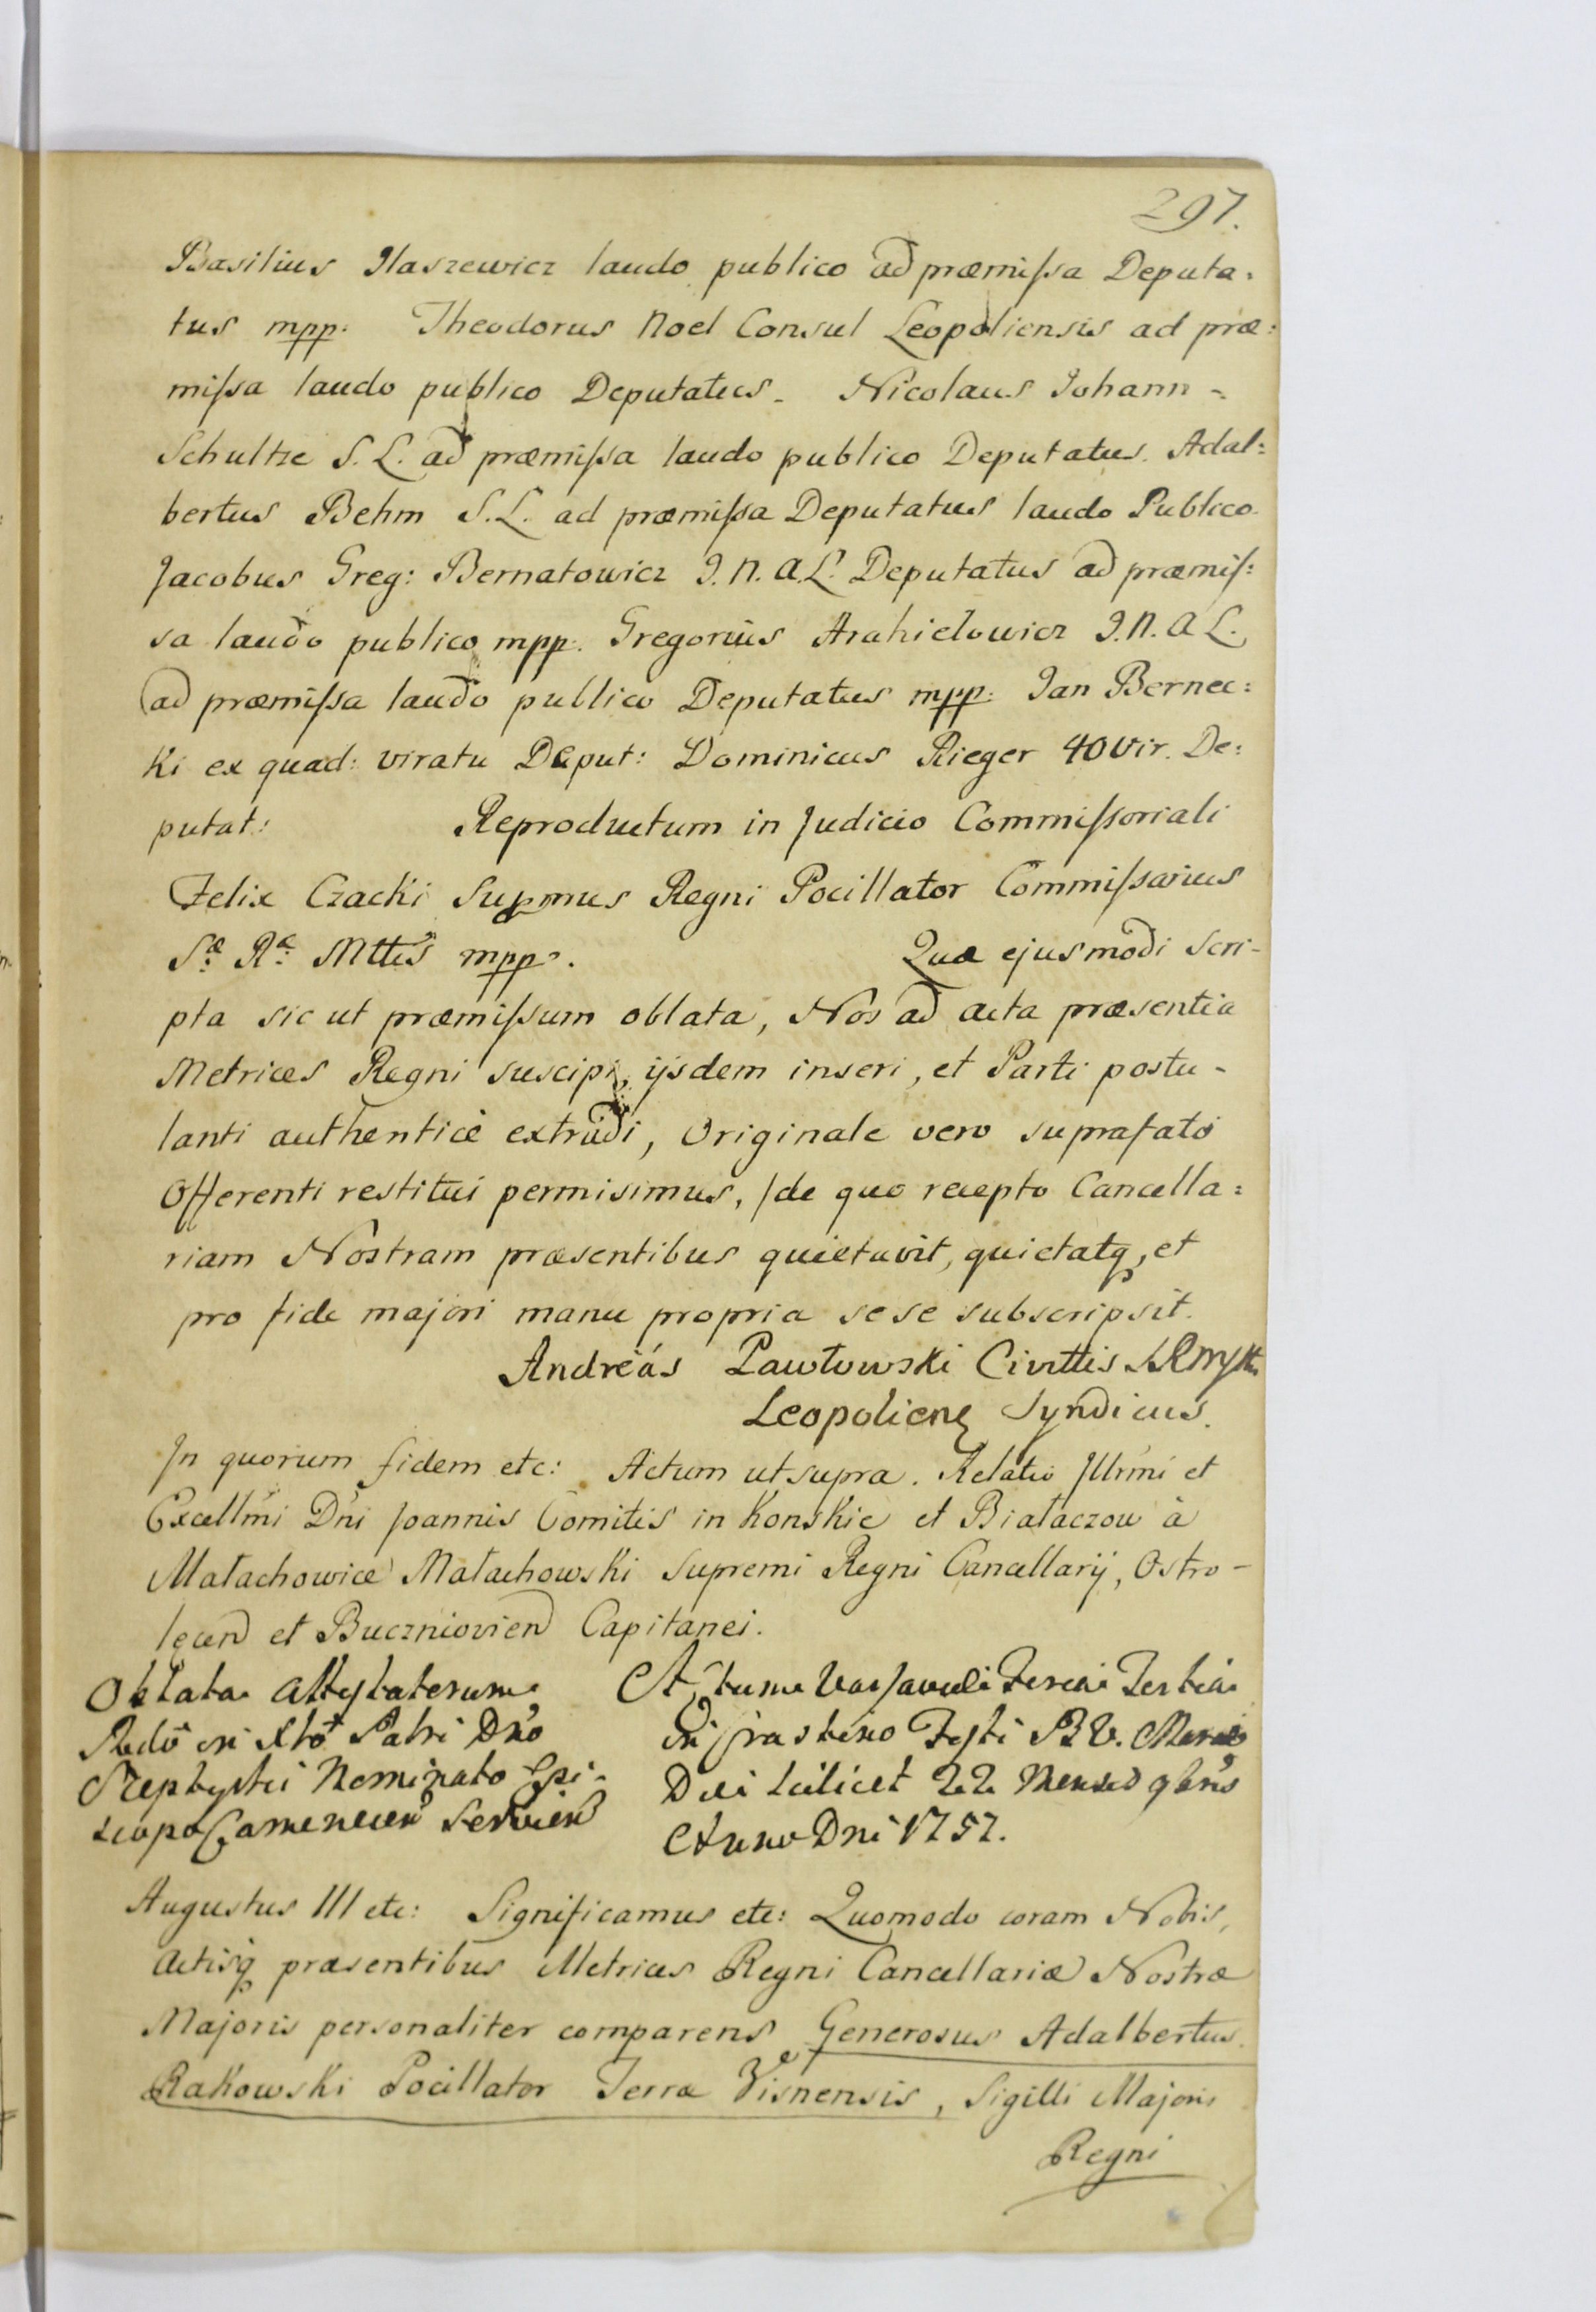 297.
Basilius Ilaszewicz laudo publico ad præmissa Deputa:
tus mpp: Theodorus Noel Consul Leopoliensis ad præ:
missa laudo publico Deputatus. Nicolaus Johann -
Schultze S. L. ad præmissa laudo publico Deputatus. Adal:
bertus Behm S. L. ad præmissa Deputatus laudo Publico
Jacobus Greg: Bernatowicz J. N. A. L. Deputatus ad præmis:
sa laudo publico mpp. Gregorius Arahielowicz J. N. A L.
ad præmissa laudo publico Deputatus mpp: Jan Bernec:
ki ex quad: viratu Deput: Dominicus Rieger 40 Vir. De:
putat: Reproductum in Judicio Commissoriali
Felix Czacki Supmus Regni Pocillator Commissarius
Sæ Ræ Mttis mpp. Quæ ejusmodi Scri-
pta sic ut præmissum oblata, Nos ad acta præsentia
Metrices Regni suscipi, ijsdem inseri, et Parti postu -
lanti authenticè extradi, Originale vero suprafato
Offerenti restitui permisimus, /de quo recepto Cancella:
riam Nostram præsentibus quietavit, quietatq, et
pro fide majori manu propria sese subscripsit.
Andreas Pawłowski Civittis SRMtt
Leopolien Syndicus.
In quorum fidem etc: Actum ut supra. Relatio Illrmi et
Excellmi Dni Joannis Comitis in Konskie et Białaczow à
Małachowice Małachowski Supremi Regni Cancellarij, Ostro -
lecen et Buczniovien Capitanei.
Oblata Attestatorum
Redo in Xto Patri Dno
Nominato Epi-
scopo Camenecen Servien
Actum Varsaviæ Feria Tertia
in crastino Festi B V. Mariæ
Die scilicet 22 Mensis 9bris
Anno Dni 1757.
Augustus III etc: Significamus etc: Quomodo coram Nobis,
Actisq præsentibus Metrices Regni Cancellariæ Nostræ
Majoris personaliter comparens Generosus Adalbertus
Rakowski Pocillator Terræ Visnensis, Sigilli Majoris
Regni